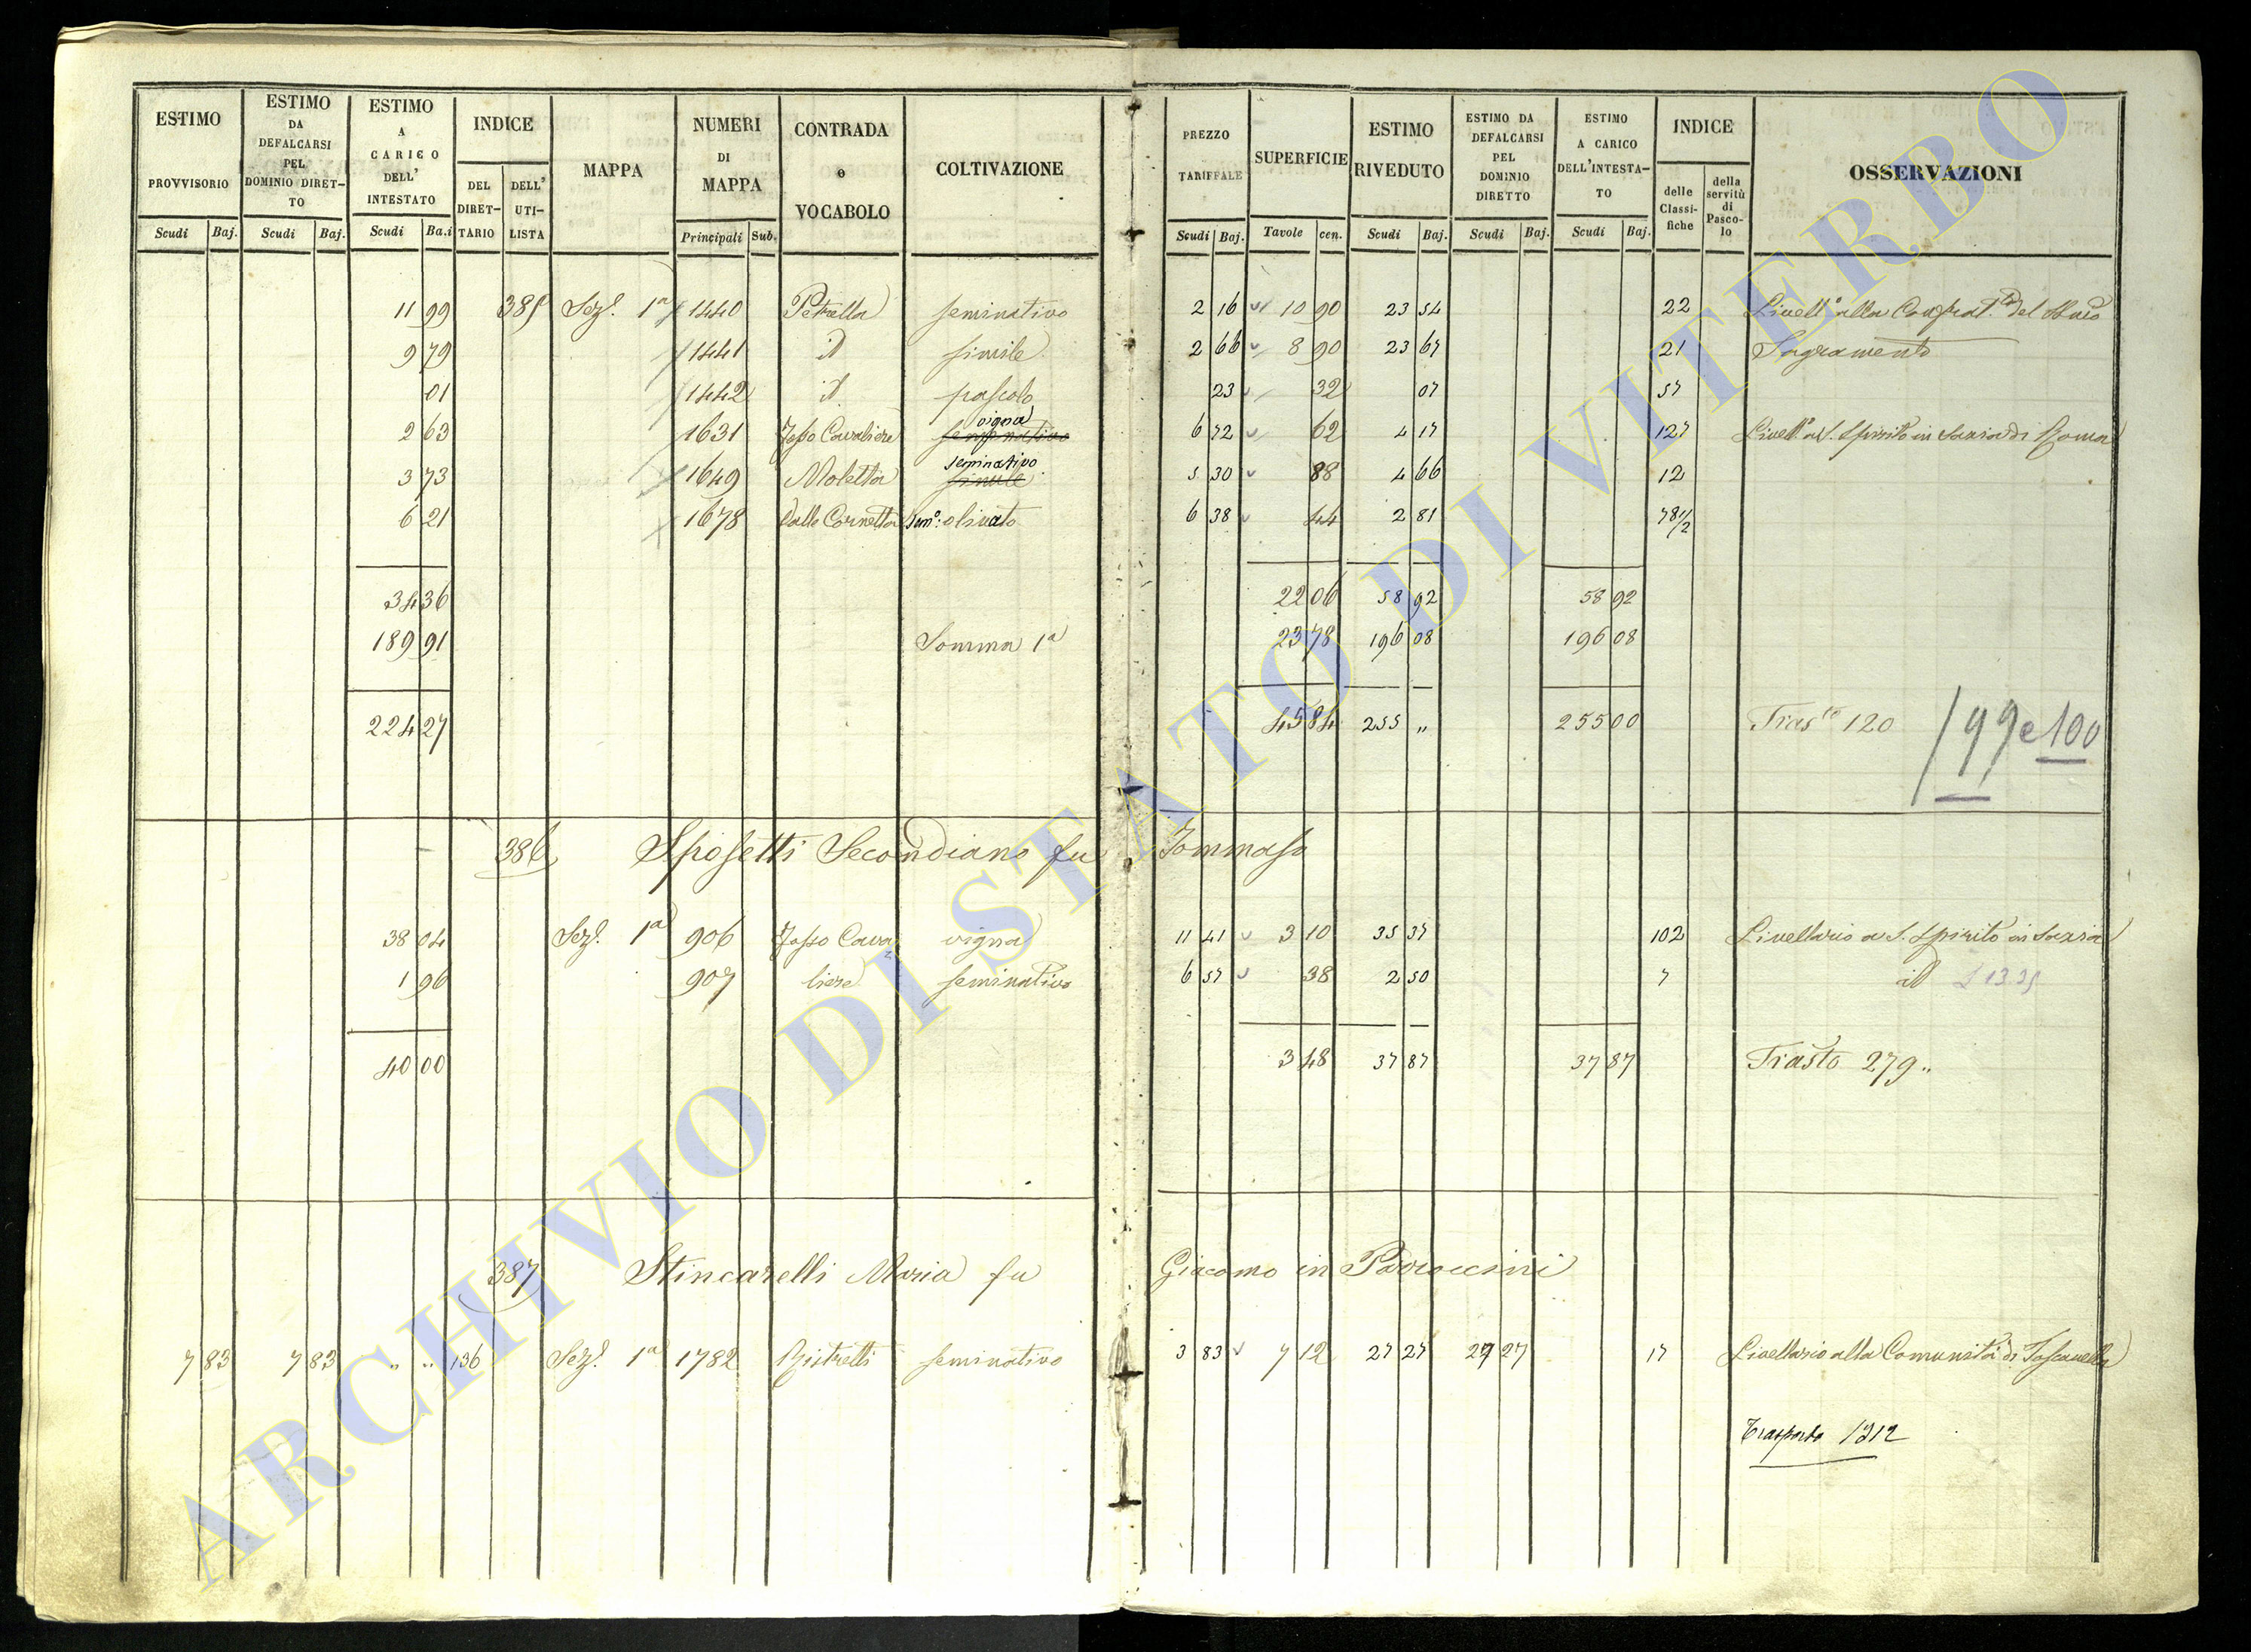 ESTIMO PROVVISORIO Scudi Baj.
ESTIMO DA DEFALCARSI PEL DOMINIO DIRET- TO Scudi Baj.
ESTIMO A CARICO DELL' INTESTATO Scudi Ba.i
INDICE DEL DIRET- TARIO DELL' UTI- LISTA
MAPPA
NUMERI DI MAPPA Principali Sub.
CONTRADA o VOCABOLO
COLTIVAZIONE
PREZZO TARIFFALE Scudi Baj.
SUPERFICIE Tavole cen.
ESTIMO RIVEDUTO Scudi Baj.
ESTIMO DA DEFALCARSI PEL DOMINIO DIRETTO Scudi Baj.
ESTIMO A CARICO DELL'INTESTA- TO Scudi Baj.
INDICE delle Classi- fiche della servitù di Pasco- lo
OSSERVAZIONI
11 99 385 Sez.e 1a 1440 Petrella seminativo 2 16 10 90 23 54 22 Livell.o alla Confrat.ta del
9 79 1441 id simile 2 66 8 90 23 67 21 Sagramento
01 1442 id pascolo 23 32 07 57
2 63 1631 Fosso Cavaliere seminativo vigna 6 72 62 4 17 127 Livell.o a S. Spirito in Saxia di Roma
3 73 1649 Moletta simile seminativo 5 30 88 4 66 12
6 21 1678 Calle Cornetta sem.o olivato 6 38 44 2 81 78 1/2
34 36 22 06 58 92 58 92
189 91 Somma 1a 23 78 196 08 196 08
224 27 45 84 255 " 255 00 Trasto 120 199 e 100
386 Sposetti Secondiano fu Tommaso
38 04 Sez.e 1a 906 Fosso Cava vigna 11 41 3 10 35 37 102 Livellario a S. Spirito in Saxia
1 96 907 liere seminativo 6 57 38 2 50 7 id
40 00 3 48 37 87 37 87 Trasto 279 "
387 Stincarelli Maria fu Giacomo in
7 83 7 83 " " 136 Sez.e 1a 1782 Ristretti seminativo 3 83 7 12 27 27 27 27 17 Livellario alla Comunità di Toscanella
Trasporto 1312
ARCHIVIO DI STATO DI VITERBO